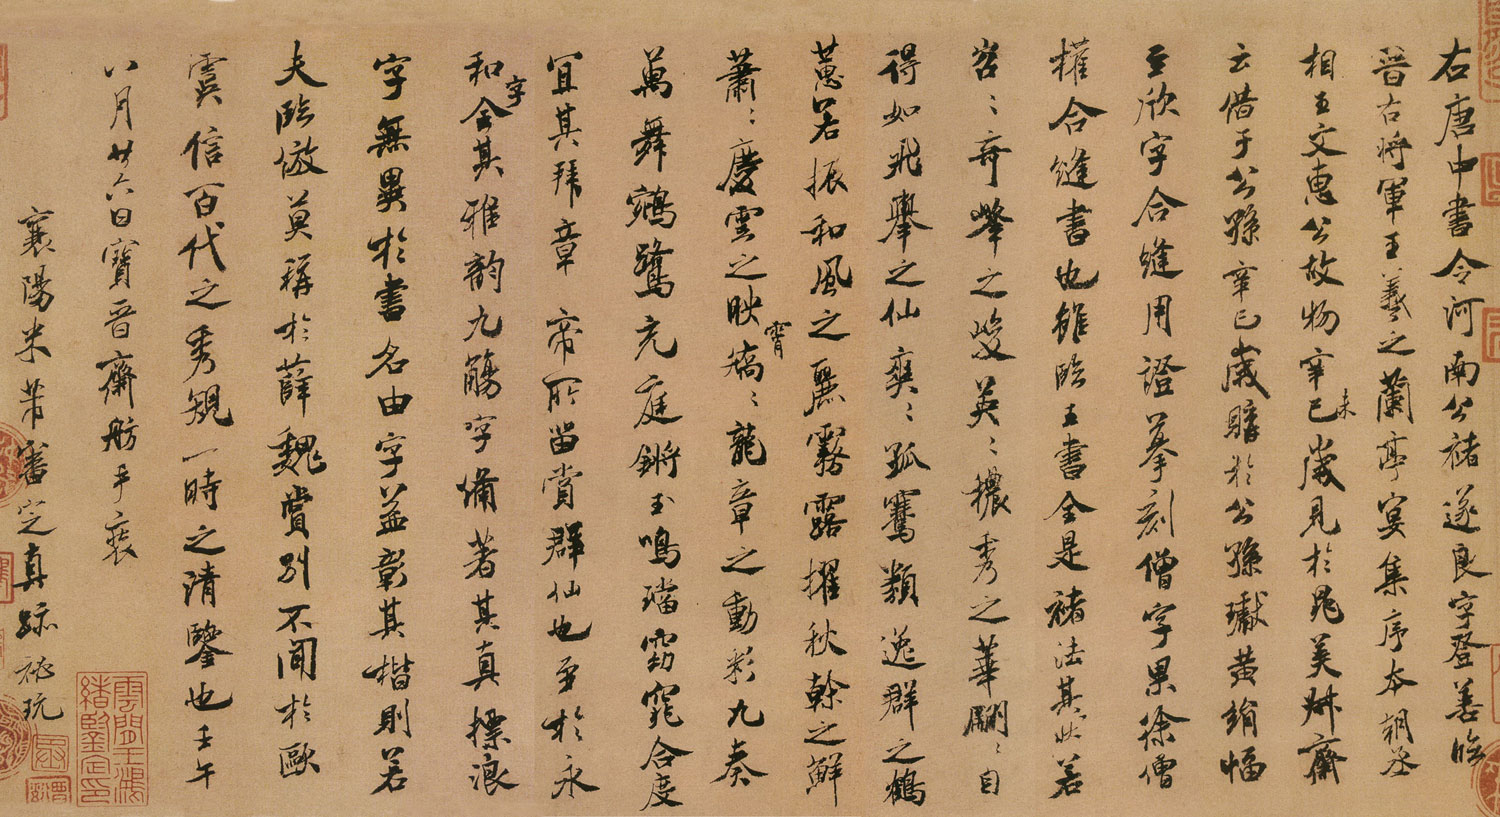 右唐中書令河南公褚遂良字登善臨
晉右將軍王羲之蘭亭宴集序本朝丞
相王文惠公故物辛巳未歲見於晁美叔齋
云借于公孫辛巳歲購於公孫瓛黃絹幅
至欣字合縫用證摹刻僧字果徐僧
權合縫書也雖臨王書全是褚法其狀若
岩〻奇峰之峻英〻穠秀之華翩〻自
得如飛舉之仙爽〻孤騫類逸群之鶴
蕙若振和風之麗霧露擢秋幹之鮮
蕭〻慶雲之映霄矯〻龍章之動彩九奏
萬舞鵷鷺充庭鏘玉鳴璫窈窕合度
宜其拜章帝所留賞群仙也至於永
和字合其雅韵九觴字備著其真標浪
字無異於書名由字益彰其楷則若
夫臨倣莫稱於薛魏賞別不聞於歐
虞信百代之秀觀一時之清鑒也壬午
八月廿六日寶晉齋舫手裝
襄陽米芾審定真跡秘玩
雲間王鴻
緒鑒定印